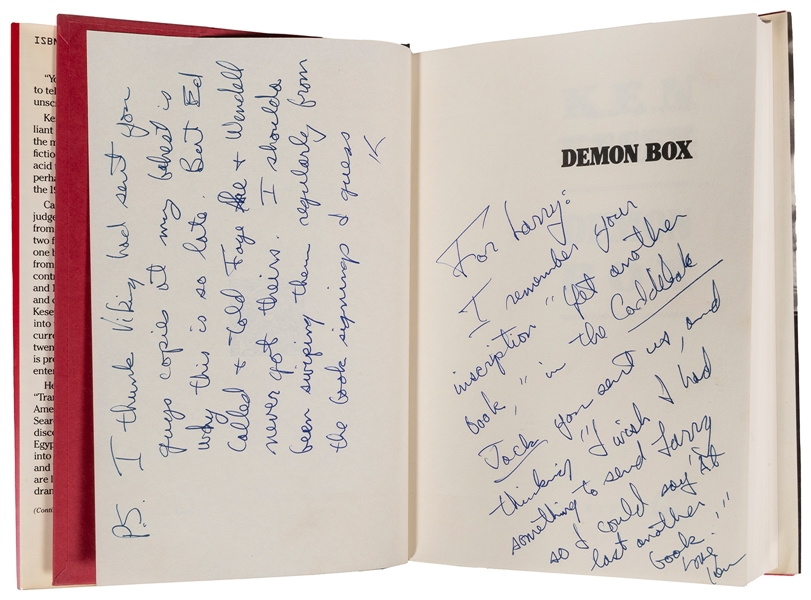 ISBN
"Yo
to tel
unsc
Ke
liant
the m
fictio
acid
perha
the 19
Ca
judge
from
two f
one b
from
contr
and 1
Kese
into
curre
twen
is pro
enter
He
"Tran
Ame
Sear
disco
Egyp
into
and b
are l
dram
(Conti
P.S. I thunk Viking had sent you
guys copies at my behest is
why this is so late. But Ed
called + told Faye + Wendell
never got theirs. I shoulda
been swiping them regularly from
the book signings I guess
K
DEMON BOX
For Larry:
I remember your
inscription "Yet another
book," in the Caddilak
Jack you sent us, and
thinking "I wish I had
something to send Larry
so I could say 'At
last another
book.'"
love
Ken